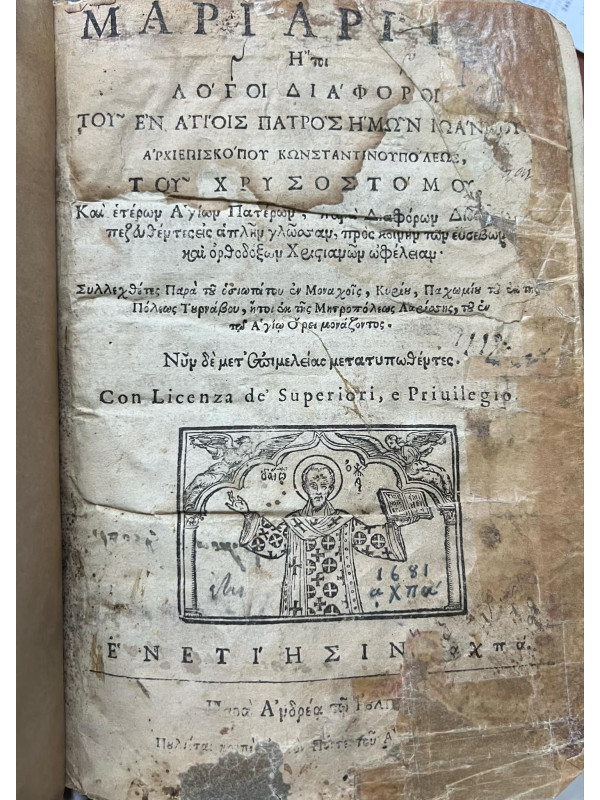 ΜΑΡΓΑΡΙΤ
Ἤτοι
ΛΟΓΟΙ ΔΙΑΦΟΡΟΙ
ΤΟΥ ΕΝ ΑΓΙΟΙΣ ΠΑΤΡΟΣ ΗΜΩΝ ΙΩΑΝΝΟΥ
ΑΡΧΙΕΠΙΣΚΟΠΟΥ ΚΩΝΣΤΑΝΤΙΝΟΥΠΟΛΕΩΣ,
ΤΟΥ ΧΡΥΣΟΣΤΟΜΟΥ
Καὶ ἑτέρων Ἁγίων Πατέρων, παρὰ Διαφόρων
πεζευθέντες εἰς ἁπλῆν γλῶσσαν, πρὸς κοινὴν τῶν εὐσεβῶν
καὶ ὀρθοδόξων Χριστιανῶν ὠφέλειαν.
Συλλεχθέτες Παρὰ τοῦ ὁσιωτάτου ἐν Μοναχοῖς, Κυρίου, Παχωμίου τοῦ ἐκ τῆς
Πόλεως Τυρνάβου, ἤτοι ἐκ τῆς Μητροπόλεως Λαρίσσης, τοῦ ἐν
τῷ Ἁγίῳ Ὄρει μονάζοντος.
Νῦν δὲ μετ' ἐπιμελείας μετατυπωθέντες.
Con Licenza de' Superiori, e Priuilegio
1681
αχπά
ἘΝΕΤΙΗΣΙΝ αχπά.
Παρὰ Ἀνδρέᾳ τῷ Ἰουλ